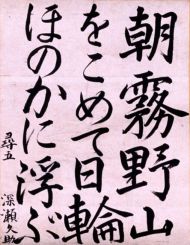 朝霧野山
をこめて日輪
ほのかに浮ぶ
尋五
深瀬久助